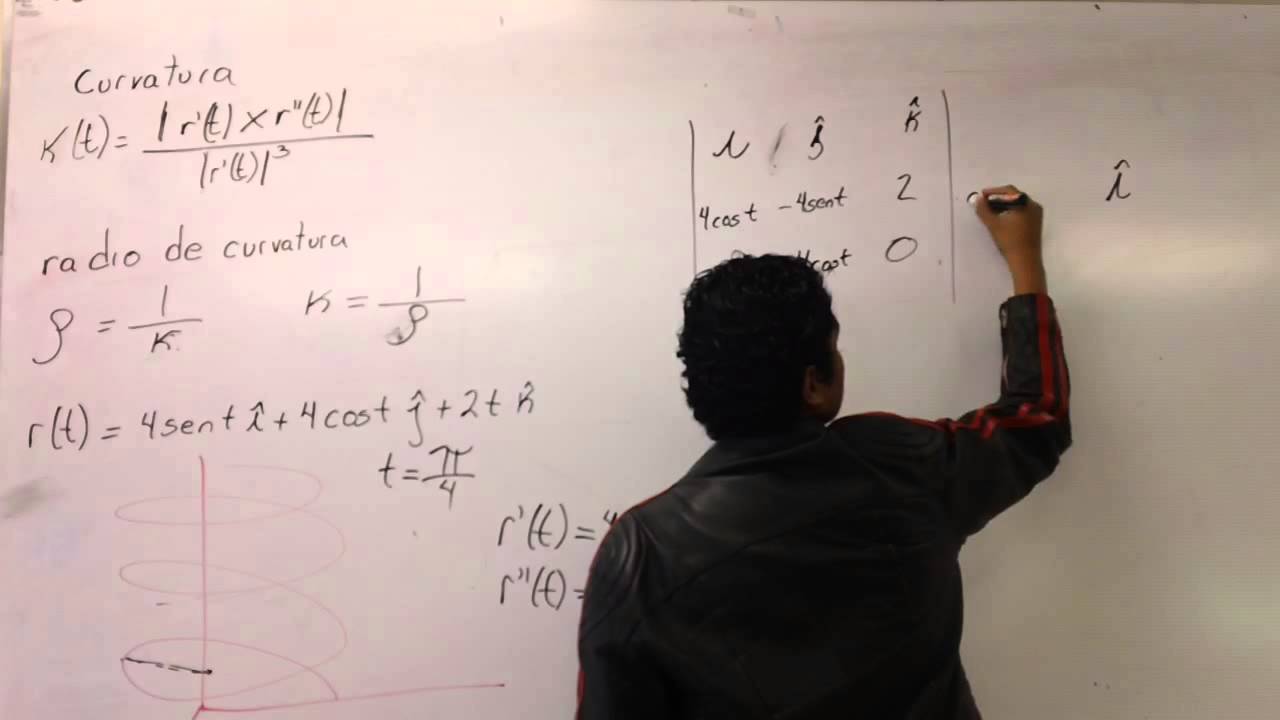 Curvatura
κ(t) = |r'(t) × r''(t)| / |r'(t)|³
radio de curvatura
ρ = 1/κ
κ = 1/ρ
r(t) = 4sent î + 4cost ĵ + 2t k̂
t = π/4
r'(t) = 4
r''(t) =
i ĵ k̂
4cost -4sent 2
cost 0
î